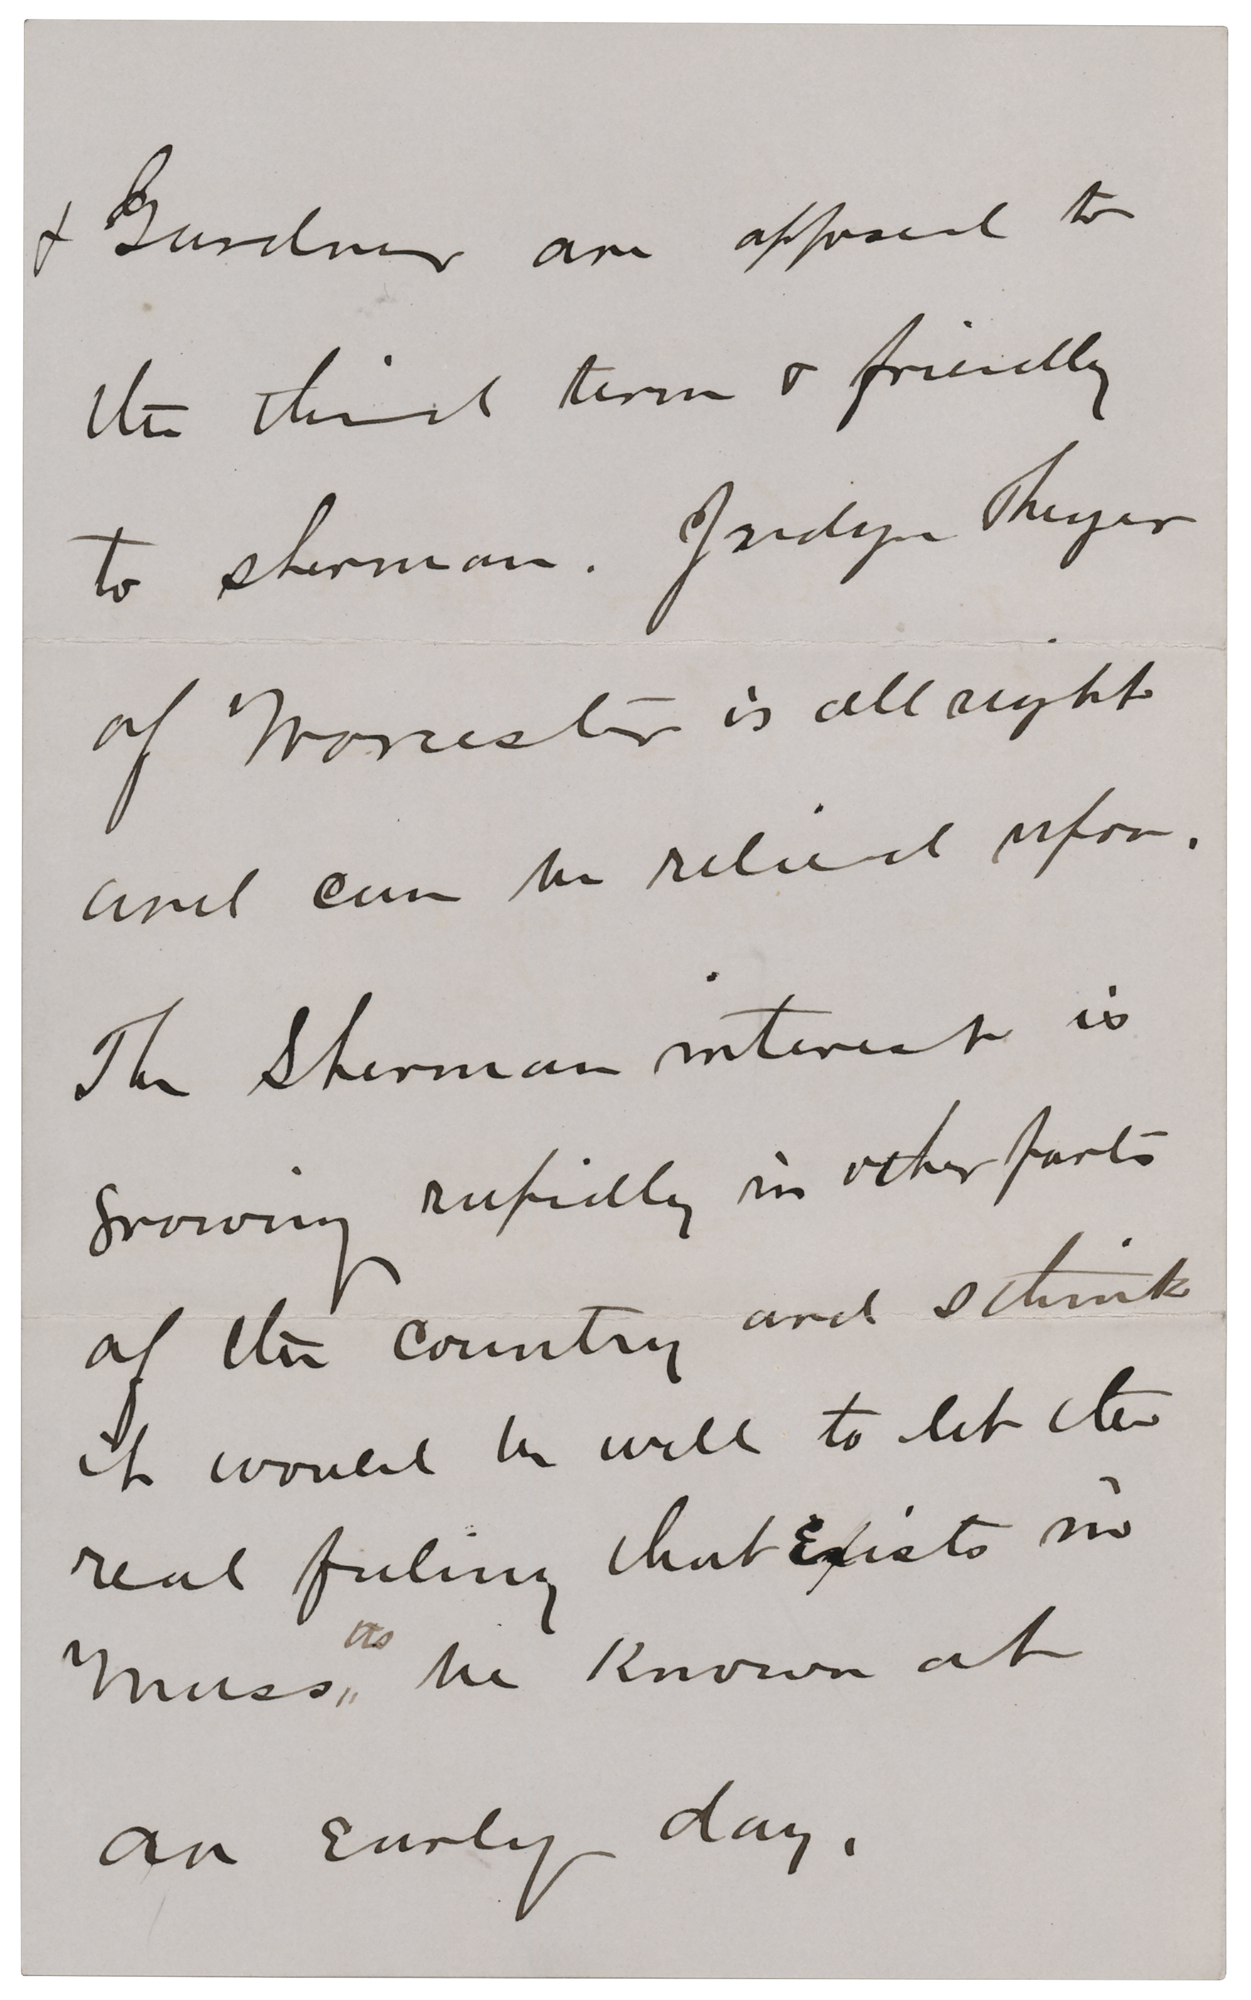 & Gardner are opposed to
the third term & friendly
to Sherman. Judge Thayer
of Worcester is all right
and can be relied upon.
The Sherman interest is
growing rapidly in other parts
of the country and I think
it would be well to let the
real feeling that Exists in
Mass tts be Known at
an Early day.